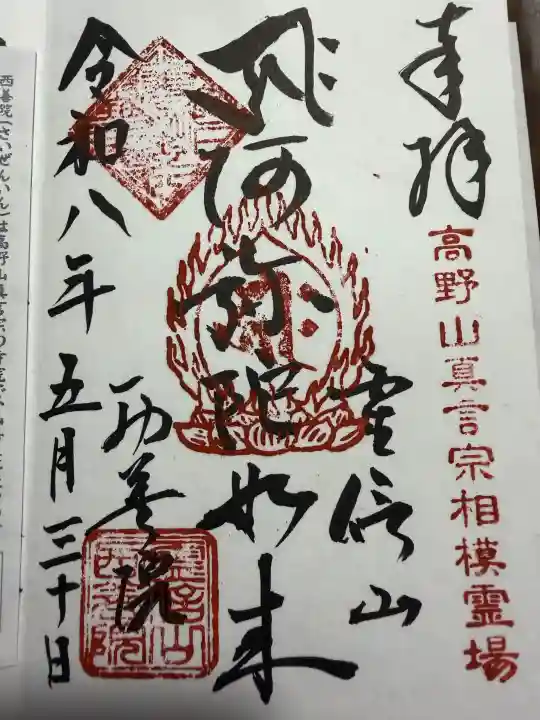 奉拝
高野山真言宗相模霊場
阿弥陀如来
霊信山
西善院
令和八年 五月三十日
西善院(さいぜんいん)は高野山真言宗の寺院で、